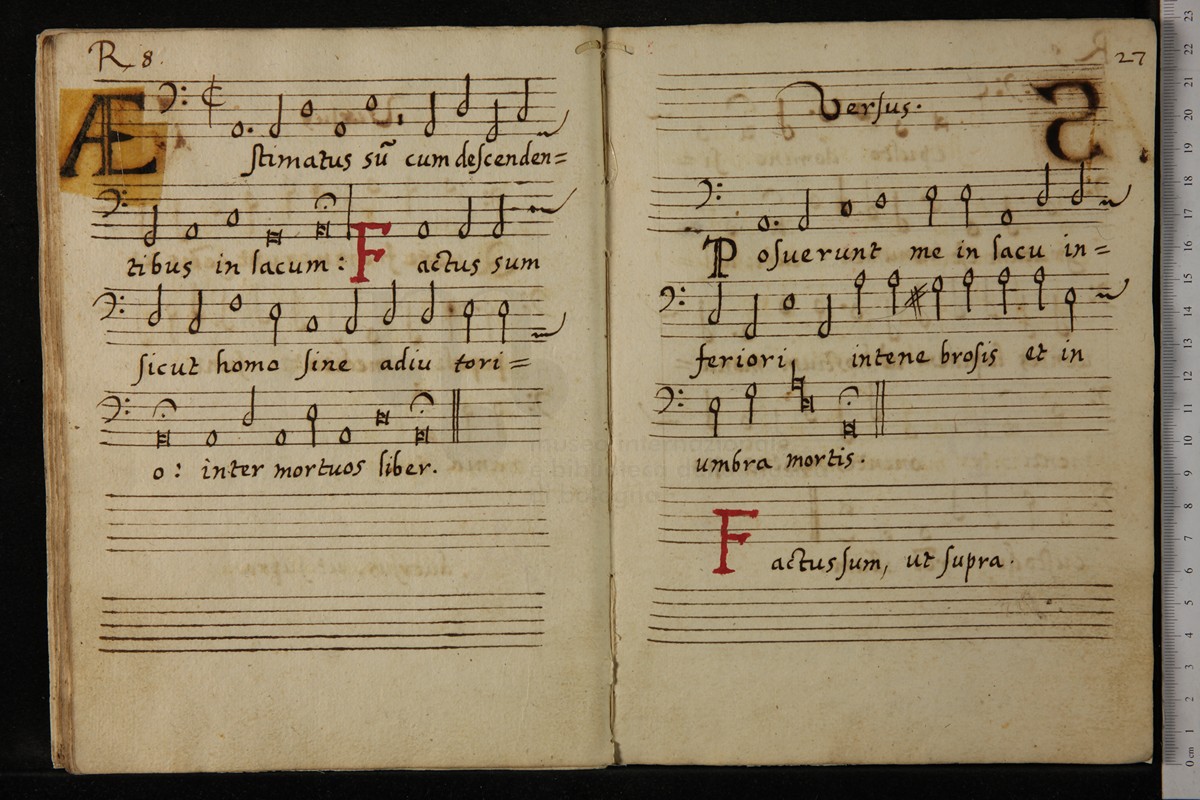 R 8.
Æstimatus sũ cum descenden=
tibus in lacum : Factus sum
sicut homo sine adiu tori=
o : inter mortuos liber.
27
Versus.
Posuerunt me in lacu in=
feriori, intene brosis et in
umbra mortis.
Factus sum, ut supra.
museo internazionale
e biblioteca della musica
di bologna
0 cm 1 2 3 4 5 6 7 8 9 10 11 12 13 14 15 16 17 18 19 20 21 22 23